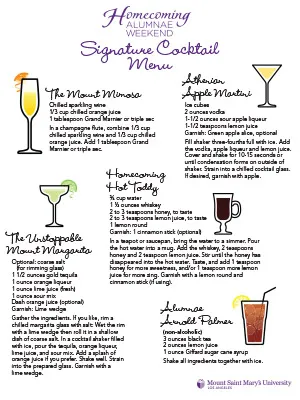 Homecoming
ALUMNAE
WEEKEND
Signature Cocktail
Menu
The Mount Mimosa
Chilled sparkling wine
1/3 cup chilled orange juice
1 tablespoon Grand Marnier or triple sec
In a champagne flute, combine 1/3 cup
chilled sparkling wine and 1/3 cup chilled
orange juice. Add 1 tablespoon Grand
Marnier or triple sec.
Athenian
Apple Martini
Ice cubes
2 ounces vodka
1-1/2 ounces sour apple liqueur
1-1/2 teaspoons lemon juice
Garnish: Green apple slice, optional
Fill shaker three-fourths full with ice. Add
the vodka, apple liqueur and lemon juice.
Cover and shake for 10-15 seconds or
until condensation forms on outside of
shaker. Strain into a chilled cocktail glass.
If desired, garnish with apple.
Homecoming
Hot Toddy
¾ cup water
1 ½ ounces whiskey
2 to 3 teaspoons honey, to taste
2 to 3 teaspoons lemon juice, to taste
1 lemon round
Garnish: 1 cinnamon stick (optional)
In a teapot or saucepan, bring the water to a simmer. Pour
the hot water into a mug. Add the whiskey, 2 teaspoons
honey and 2 teaspoons lemon juice. Stir until the honey has
disappeared into the hot water. Taste, and add 1 teaspoon
honey for more sweetness, and/or 1 teaspoon more lemon
juice for more zing. Garnish with a lemon round and
cinnamon stick (if using).
The Unstoppable
Mount Margarita
Optional: coarse salt
(for rimming glass)
1 1/2 ounces gold tequila
1 ounce orange liqueur
1 ounce lime juice (fresh)
1 ounce sour mix
Dash orange juice (optional)
Garnish: Lime wedge
Gather the ingredients. If you like, rim a
chilled margarita glass with salt: Wet the rim
with a lime wedge then roll it in a shallow
dish of coarse salt. In a cocktail shaker filled
with ice, pour the tequila, orange liqueur,
lime juice, and sour mix. Add a splash of
orange juice if you prefer. Shake well. Strain
into the prepared glass. Garnish with a
lime wedge.
Alumnae
Arnold Palmer
(non-alcoholic)
3 ounces black tea
2 ounces lemon juice
1 ounce Giffard sugar cane syrup
Shake all ingredients together with ice.
Mount Saint Mary's University
LOS ANGELES